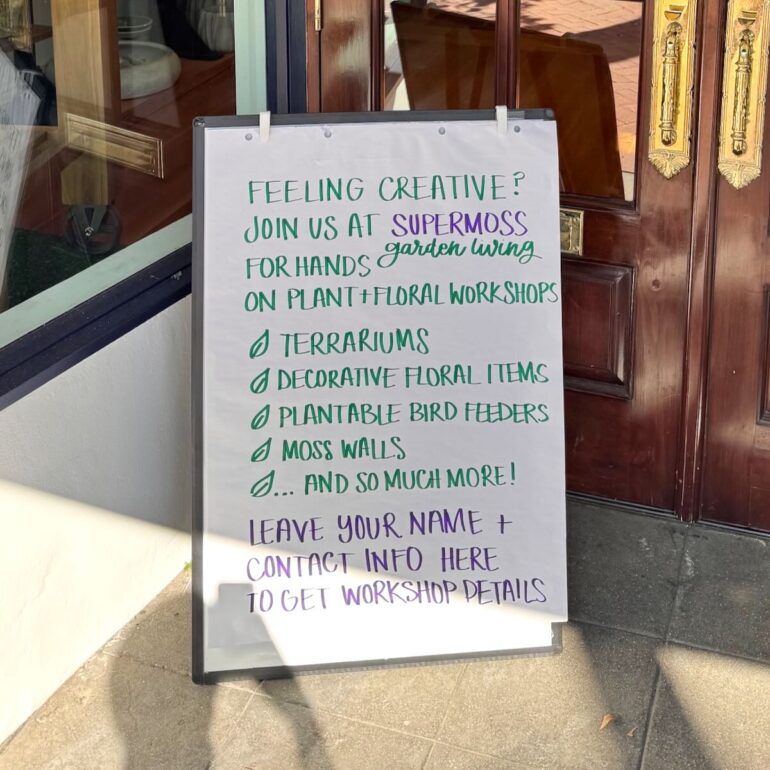 FEELING CREATIVE?
JOIN US AT SUPERMOSS
garden living
FOR HANDS
ON PLANT+FLORAL WORKSHOPS
TERRARIUMS
DECORATIVE FLORAL ITEMS
PLANTABLE BIRD FEEDERS
MOSS WALLS
... AND SO MUCH MORE!
LEAVE YOUR NAME +
CONTACT INFO HERE
TO GET WORKSHOP DETAILS